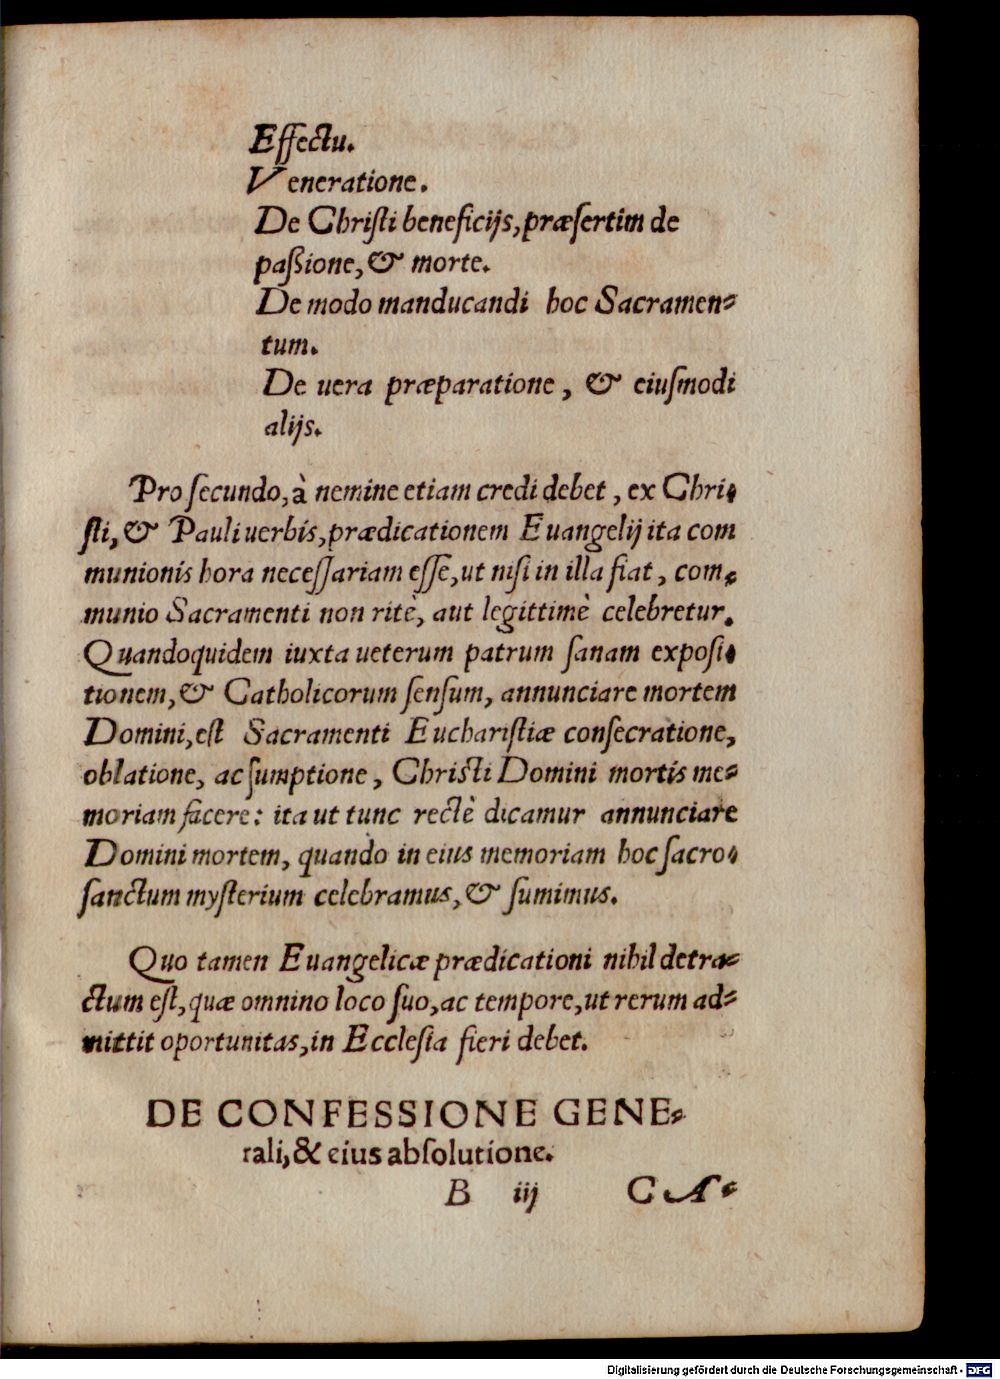 Effectu.
Veneratione.
De Christi beneficijs, præsertim de
paßione, & morte.
De modo manducandi hoc Sacramen-
tum.
De uera præparatione, & eiusmodi
alijs.
Pro secundo, à nemine etiam credi debet, ex Chri-
sti, & Pauli uerbis, prædicationem Euangelij ita com
munionis hora necessariam esse, ut nisi in illa fiat, com-
munio Sacramenti non ritè, aut legittimè celebretur.
Quandoquidem iuxta ueterum patrum sanam exposi-
tionem, & Catholicorum sensum, annunciare mortem
Domini, est Sacramenti Eucharistiæ consecratione,
oblatione, ac sumptione, Christi Domini mortis me-
moriam facere: ita ut tunc rectè dicamur annunciare
Domini mortem, quando in eius memoriam hoc sacro-
sanctum mysterium celebramus, & sumimus.
Quo tamen Euangelicæ prædicationi nihil detra-
ctum est, quæ omnino loco suo, ac tempore, ut rerum ad-
mittit oportunitas, in Ecclesia fieri debet.
DE CONFESSIONE GENE-
rali, & eius absolutione.
B iij CA-
Digitalisierung gefördert durch die Deutsche Forschungsgemeinschaft - DFG